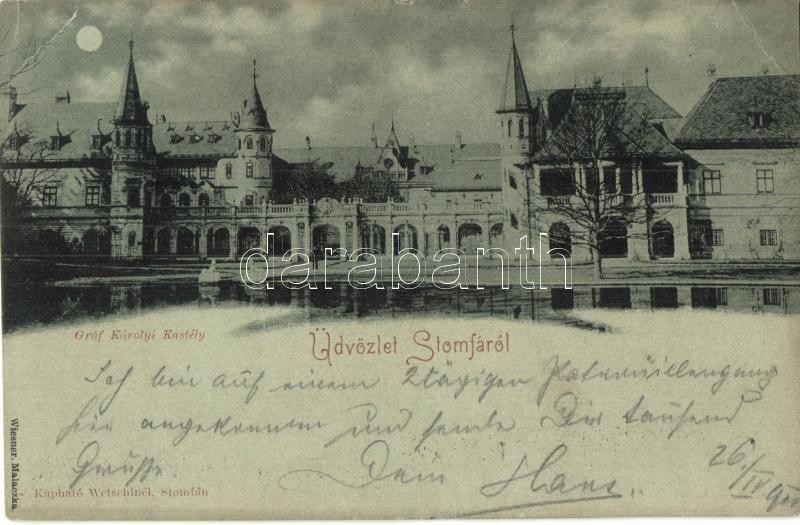 darabanth
Gróf Károlyi Kastély
Üdvözlet Stomfáról
Ich bin auf einem 2tägigen Patrouillengang
hier angekommen und sende Dir tausend
Grüsse. Dein Hans
26/IV
Kapható Wetschlnél, Stomfán
Wiesner, Malaczka